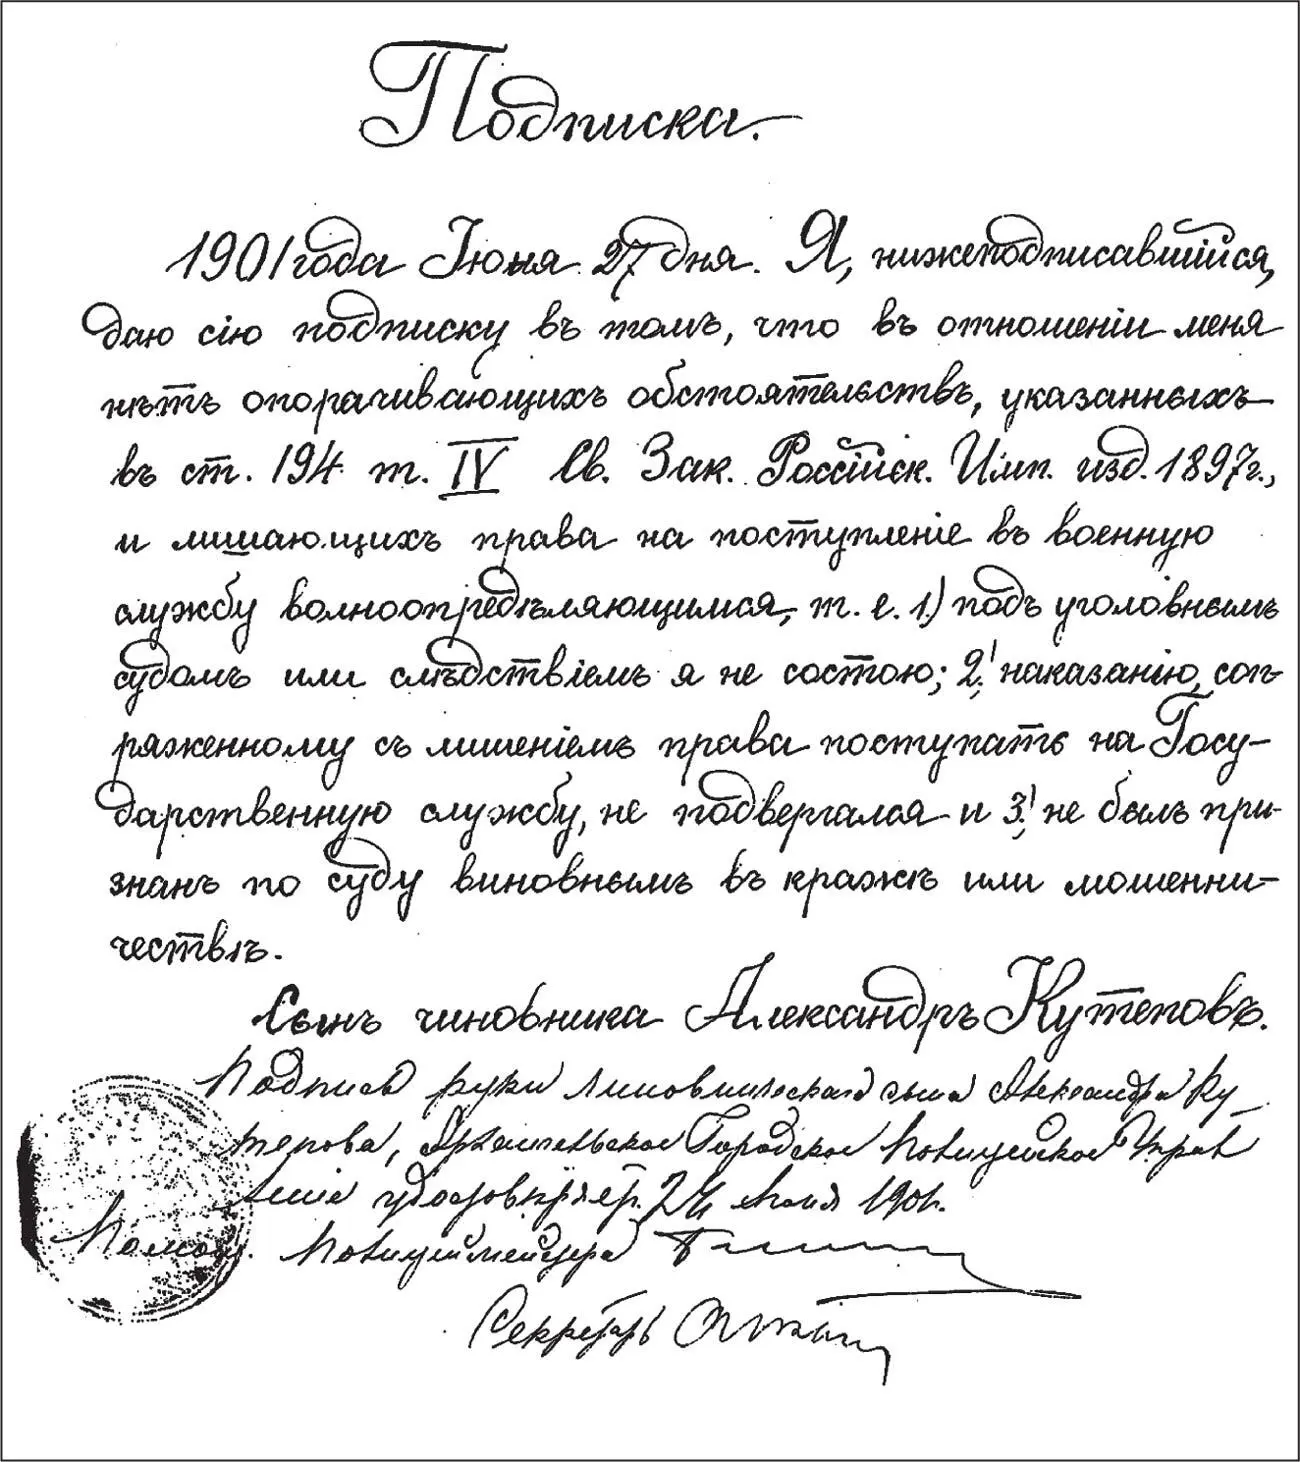 Подписка.
1901 года Іюня 27 дня. Я, нижеподписавшійся,
даю сію подписку въ томъ, что въ отношеніи меня
нѣтъ опорачивающихъ обстоятельствъ, указанныхъ
въ ст. 194 т. IV Св. Зак. Россійск. Имп. изд. 1897 г.,
и лишающихъ права на поступленіе въ военную
службу вольноопредѣляющимся, т. е. 1) подъ уголовнымъ
судомъ или слѣдствіемъ я не состою; 2) наказанію, соп-
ряженному съ лишеніемъ права поступать на Госу-
дарственную службу, не подвергался и 3) не былъ при-
знанъ по суду виновнымъ въ кражѣ или мошенни-
чествѣ.
Сынъ чиновника Александръ Кутеповъ.
Подпись руки сына Александра Ку-
тепова, Архангельское Городское Полицейское Управ
леніе удостовѣряетъ. 1901 г.
Помощ. Полицеймейстера
Секретарь